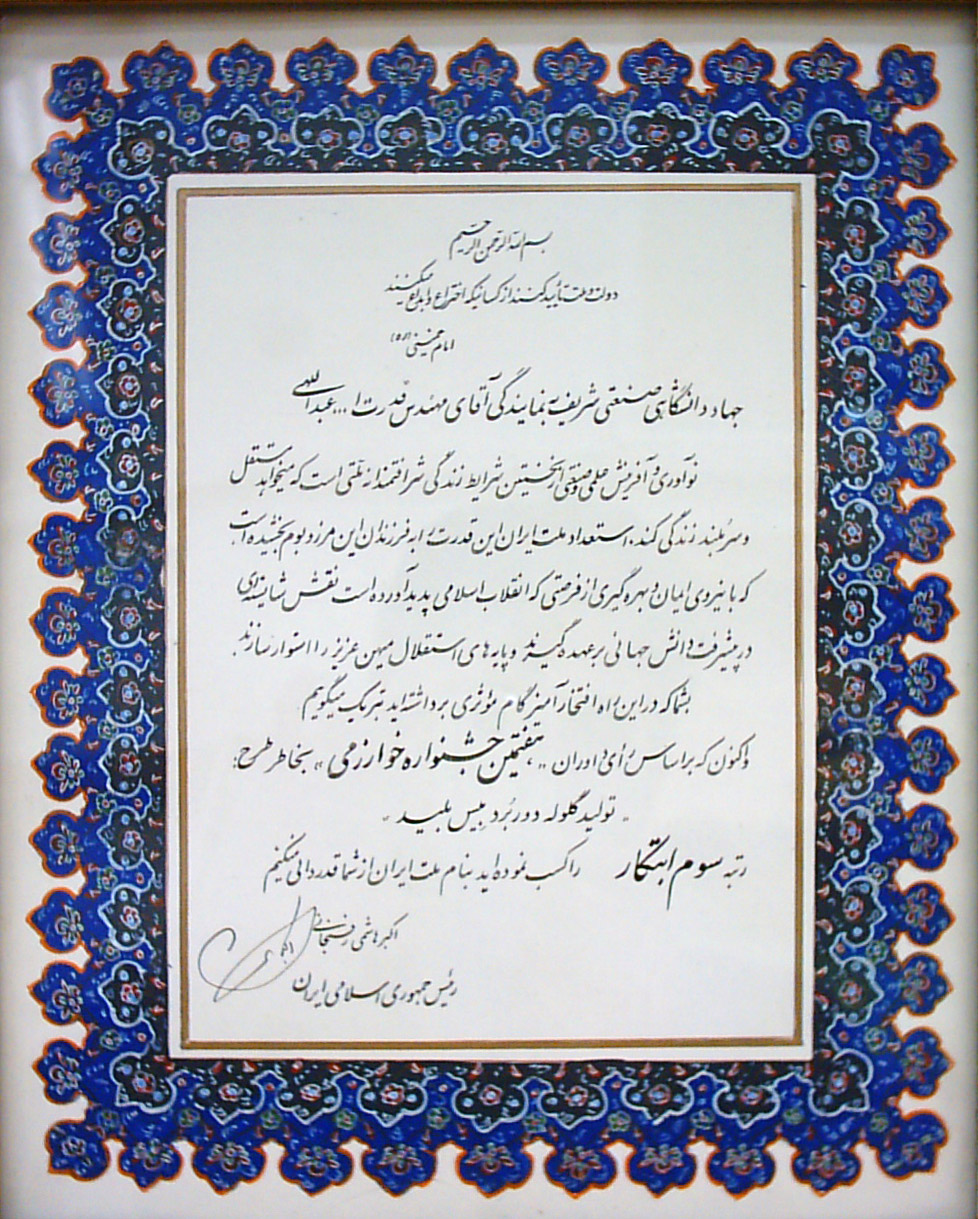 بسم الله الرحمن الرحیم
دولت و ملت تأیید کنند از کسانیکه اختراع و ابداع میکنند
امام خمینی (ره)
جهاد دانشگاهی صنعتی شریف به نمایندگی آقای مهندس قدرت ا... عبداللهی
نوآوری و آفرینش علمی و صنعتی از نخستین شرایط زندگی شرافتمندانه ملتی است که میخواهد مستقل
و سربلند زندگی کند. استعداد ملت ایران این قدرت را به فرزندان این مرز و بوم بخشیده است
که با نیروی ایمان و بهره گیری از فرصتی که انقلاب اسلامی پدید آورده است نقش شایسته ای
در پیشرفت دانش جهانی بر عهده گیرند و پایه های استقلال میهن عزیز را استوار سازند.
بشما که در این راه افتخارآمیز گام مؤثری برداشته اید تبریک میگوییم
و اکنون که بر اساس رأی داوران «هفتمین جشنواره خوارزمی» بخاطر طرح:
«تولید گلوله دوربرد بیس بلید»
رتبه سوم ابتکار را کسب نموده اید بنام ملت ایران از شما قدردانی میکنیم
اکبر هاشمی رفسنجانی
رئیس جمهوری اسلامی ایران